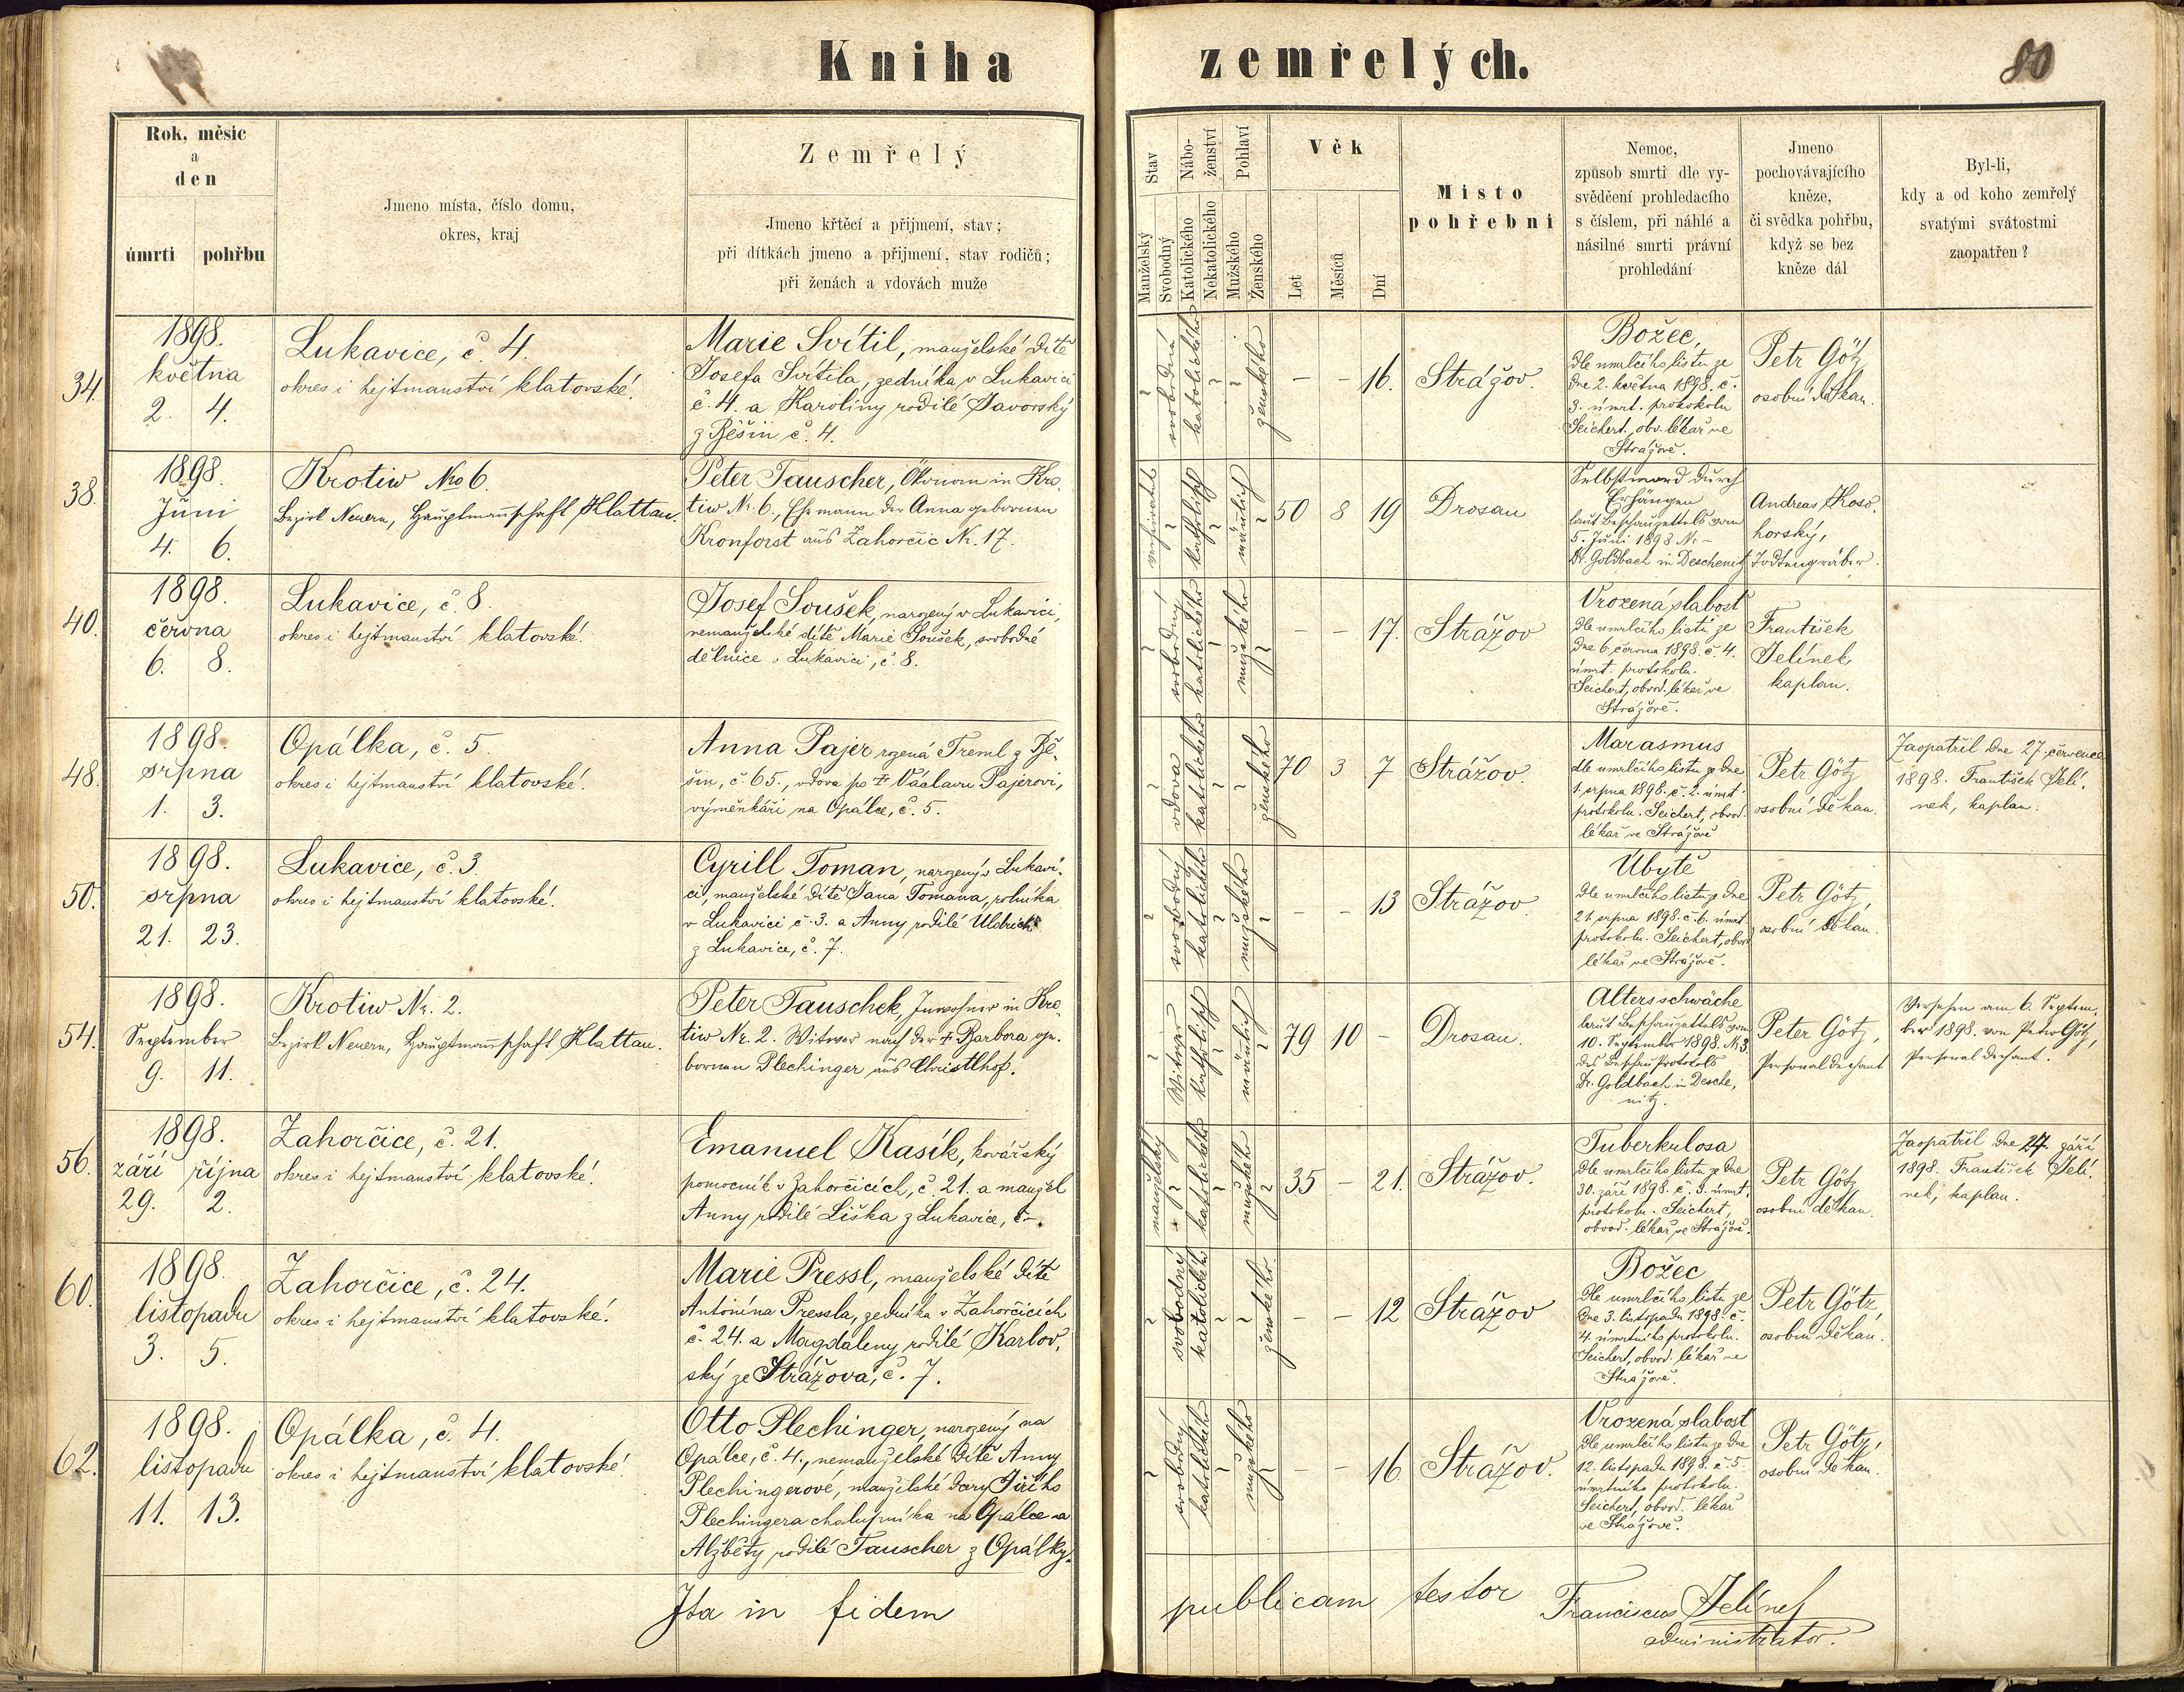 Kniha zemřelých.
80
Rok, měsíc
a
den
úmrtí pohřbu
Jmeno místa, číslo domu,
okres, kraj
Zemřelý
Jmeno křtěcí a přijmení, stav;
při dítkách jmeno a přijmení, stav rodičů;
při ženách a vdovách muže
Stav
Manželský
Svobodný
Nábo-
ženství
Katolického
Nekatolického
Pohlaví
Mužského
Ženského
Věk
Let
Měsíců
Dní
Místo
pohřební
Nemoc,
způsob smrti dle vy-
svědčení prohledacího
s číslem, při náhlé a
násilné smrti právní
prohledání
Jmeno
pochovávajícího
kněze,
či svědka pohřbu,
když se bez
kněze dál
Byl-li,
kdy a od koho zemřelý
svatými svátostmi
zaopatřen?
34.
1898.
května
2. 4.
Lukavice, č. 4.
okres i hejtmanství klatovské.
Marie Svítil, manželské dítě
Josefa Svítila, zedníka v Lukavici
č. 4. a Karolíny rodilé Javorský
z Běšin č. 4.
svobodná
katolického
ženského
– – 16.
Strážov.
Božec,
dle umrlčího listu ze
dne 2. května 1898. č.
3. úmrt. protokolu
Seichert, obv. lékař ve
Strážově.
Petr Götz
osobní děkan.
38.
1898.
Juni
4. 6.
Krotiw No 6.
Bezirk Neuern, Hauptmannschaft Klattau.
Peter Tauscher, Ökonom in Kro-
tiw Nr. 6., Ehemann der Anna gebornen
Kronforst aus Zahorčic Nr. 17.
verheiratet
katholisch
männlich
50 8 19
Drosau
Selbstmord durch
Erhängen
laut Beschauzettels vom
5. Juni 1898 Nr –
Dr. Goldbach in Deschenitz
Andreas Koso-
horský,
Todtengräber.
40.
1898.
června
6. 8.
Lukavice, č. 8.
okres i hejtmanství klatovské.
Josef Soušek, narozený v Lukavici,
nemanželské dítě Marie Soušek, svobodné
dělnice v Lukavici, č. 8.
svobodný
katolického
mužského
– – 17.
Strážov
Vrozená slabost
dle umrlčího listu ze
dne 6. června 1898. č. 4.
úmrt. protokolu.
Seichert, obvod. lékař ve
Strážově.
František
Jelínek,
kaplan.
48.
1898.
srpna
1. 3.
Opálka, č. 5.
okres i hejtmanství klatovské.
Anna Pajer rozená Treml z Bě-
šin, č 65., vdova po † Václavu Pajerovi,
výměnkáři na Opálce, č. 5.
vdova
katolického
ženského
70 3 7
Strážov.
Marasmus
dle umrlčího listu ze dne
1. srpna 1898. č. 2. úmrt.
protokolu. Seichert, obvod.
lékař ve Strážově
Petr Götz
osobní děkan.
Zaopatřil dne 27. července
1898. František Jelí-
nek, kaplan.
50.
1898.
srpna
21. 23.
Lukavice, č. 3.
okres i hejtmanství klatovské.
Cyrill Toman, narozený v Lukavi-
ci, manželské dítě Jana Tomana, rolníka
v Lukavici č. 3. a Anny rodilé Uldrich
z Lukavice, č. 7.
svobodný
katolického
mužského
– – 13
Strážov
Úbytě
dle umrlčího listu ze dne
21. srpna 1898. č. 6. úmrt.
protokolu. Seichert, obvod
lékař ve Strážově.
Petr Götz,
osobní děkan.
54.
1898.
September
9. 11.
Krotiw Nr. 2.
Bezirk Neuern, Hauptmannschaft Klattau.
Peter Tauschek, Inwohner in Kro-
tiw Nr. 2. Witwer nach der † Barbora ge-
bornen Plechinger aus Christlhof.
Witwer
katholisch
männlich
79 10 –
Drosau.
Altersschwäche
laut Beschauzettels vom
10. September 1898. N. 3
des Beschau Protokols
Dr. Goldbach in Desche-
nitz.
Peter Götz,
Personaldechant
Versehen am 6. Septem-
ber 1898. von Peter Götz,
Personaldechant.
56.
1898.
září října
29. 2.
Zahorčice, č. 21.
okres i hejtmanství klatovské.
Emanuel Kasík, kovářský
pomocník v Zahorčicích, č. 21. a manžel
Anny rodilé Liška z Lukavice, č –.
manželský
katolického
mužského
35 – 21.
Strážov.
Tuberkulosa
dle umrlčího listu ze dne
30. září 1898. č. 3. úmrt.
protokolu. Seichert,
obvod. lékař ve Strážově.
Petr Götz
osobní děkan.
Zaopatřil dne 27. září
1898. František Jelí-
nek, kaplan.
60.
1898.
listopadu
3. 5.
Zahorčice, č. 24.
okres i hejtmanství klatovské.
Marie Pressl, manželské dítě
Antonína Pressla, zedníka v Zahorčicích
č. 24. a Magdaleny rodilé Karlov-
ský ze Strážova, č. 7.
svobodná
katolického
ženského
– – 12
Strážov
Božec
dle umrlčího listu ze
dne 3. listopadu 1898. č.
4. úmrtního protokolu.
Seichert, obvod. lékař ve
Strážově.
Petr Götz,
osobní děkan.
62.
1898.
listopadu
11. 13.
Opálka, č. 4.
okres i hejtmanství klatovské.
Otto Plechinger, narozený na
Opálce, č. 4., nemanželské dítě Anny
Plechingerové, manželské dcery Jiřího
Plechingera chalupníka na Opálce a
Alžběty rodilé Tauscher z Opálky.
svobodný
katolického
mužského
– – 16
Strážov.
Vrozená slabost
dle umrlčího listu ze dne
12. listopadu 1898. č. 5.
úmrtního protokolu.
Seichert, obvod. lékař
ve Strážově.
Petr Götz,
osobní děkan.
Ita in fidem publicam testor Franciscus Jelínek
administrator.